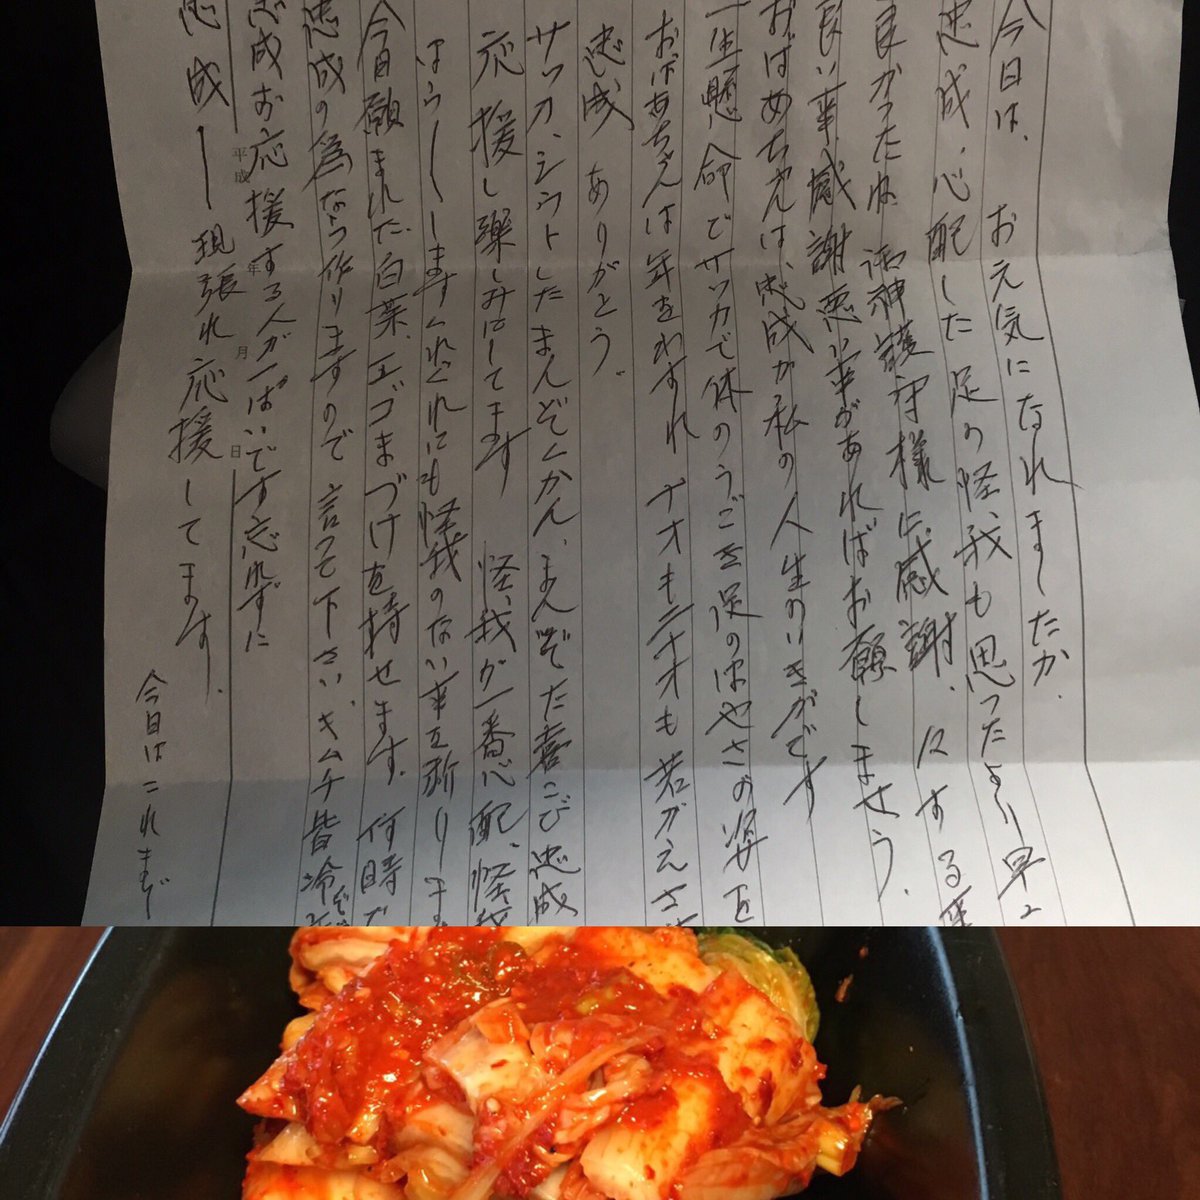 今日は、お元気になれましたか.
忠成、心配した足の怪我も思ったより早く
良かったね 御神護守様に感謝、
良い事、感謝悪い事があればお願しませう.
おばあちゃんは、忠成が私の人生のいきがです
一生懸命でサッカで体のうごき足のはやさの姿を
おばあちゃんは年をわすれ ナオもニナオも若がえ
忠成 ありがとう.
サッカ、シウトしたまんぞくかん、まんぞた喜こび 忠成
応援し楽しみにしてます 怪我が一番心配、怪我
はう
しますくれぐれにも怪我のない事
今日願まれた、白菜、エゴまづけを持せます. 何時
忠成の為なら作りますので 言って下さい、キムチ皆冷
忠成お応援する人が一ぱいです忘れずに
忠成 現張れ応援してます.
今日はこれまで
平成 年 月 日